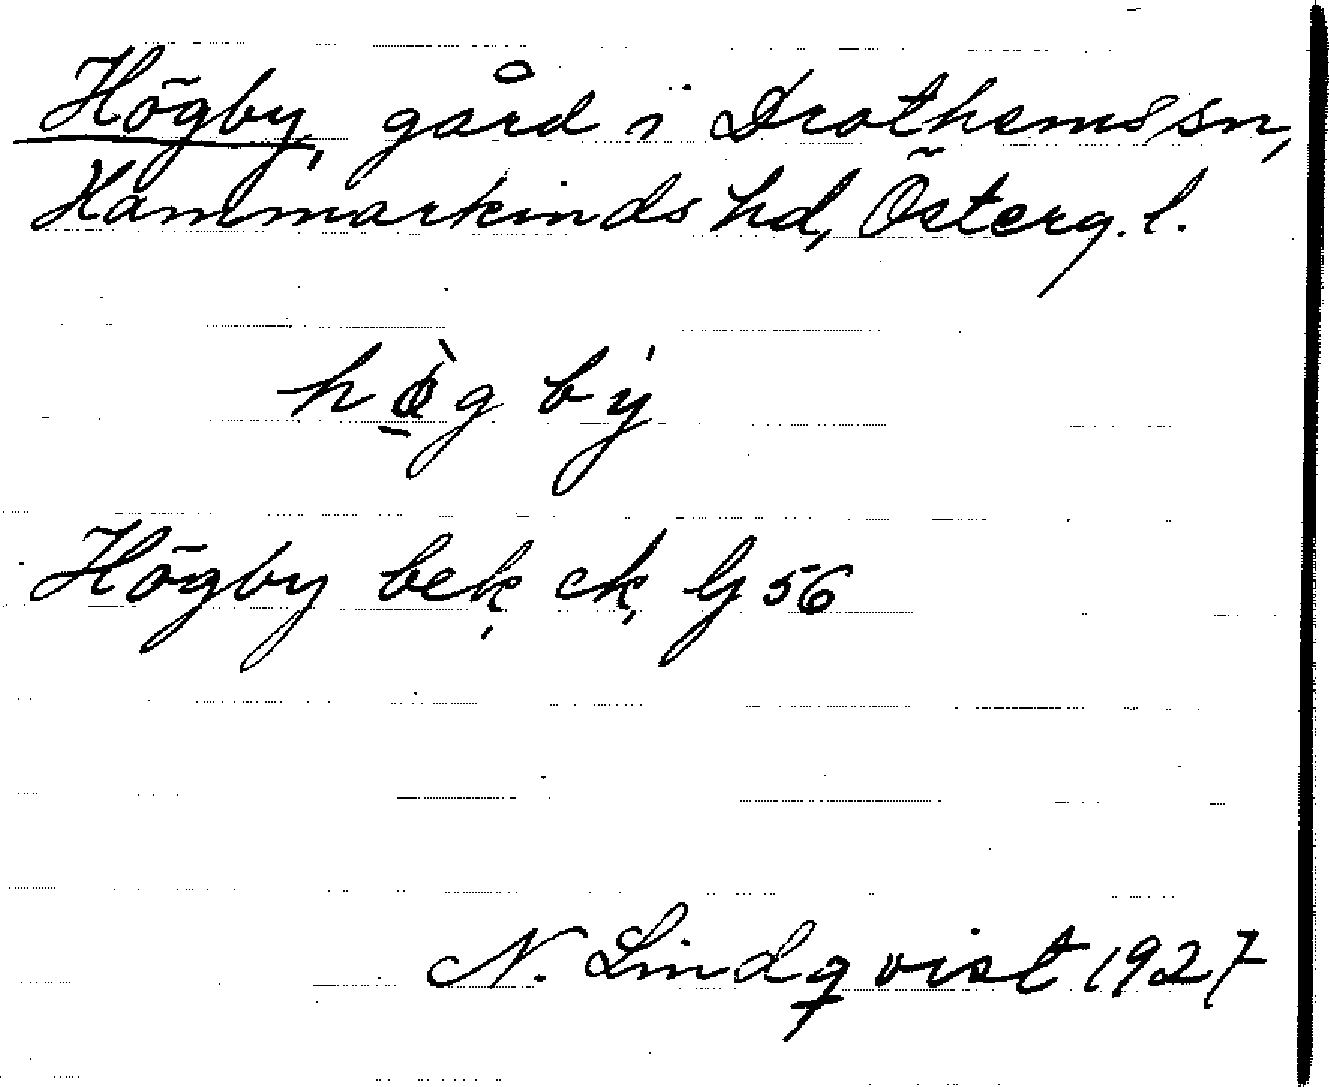 Högby, gård i Drothems sn,
Hammarkinds hd, Österg. l.
hø̀g bý
Högby bek ek lj 56
N. Lindqvist 1927